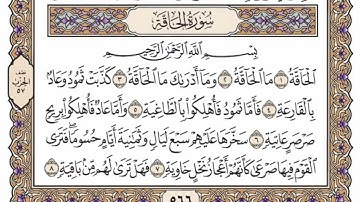 سُورَةُ الْحَاقَّةِ
بِسْمِ اللَّهِ الرَّحْمَٰنِ الرَّحِيمِ
الْحَاقَّةُ ١ مَا الْحَاقَّةُ ٢ وَمَا أَدْرَىٰكَ مَا الْحَاقَّةُ ٣ كَذَّبَتْ ثَمُودُ وَعَادٌ
بِالْقَارِعَةِ ٤ فَأَمَّا ثَمُودُ فَأُهْلِكُوا بِالطَّاغِيَةِ ٥ وَأَمَّا عَادٌ فَأُهْلِكُوا بِرِيحٍ
صَرْصَرٍ عَاتِيَةٍ ٦ سَخَّرَهَا عَلَيْهِمْ سَبْعَ لَيَالٍ وَثَمَٰنِيَةَ أَيَّامٍ حُسُومًا فَتَرَى
الْقَوْمَ فِيهَا صَرْعَىٰ كَأَنَّهُمْ أَعْجَازُ نَخْلٍ خَاوِيَةٍ ٧ فَهَلْ تَرَىٰ لَهُم مِّن بَاقِيَةٍ ٨
نصف
الحزب
٥٧
٥٦٦